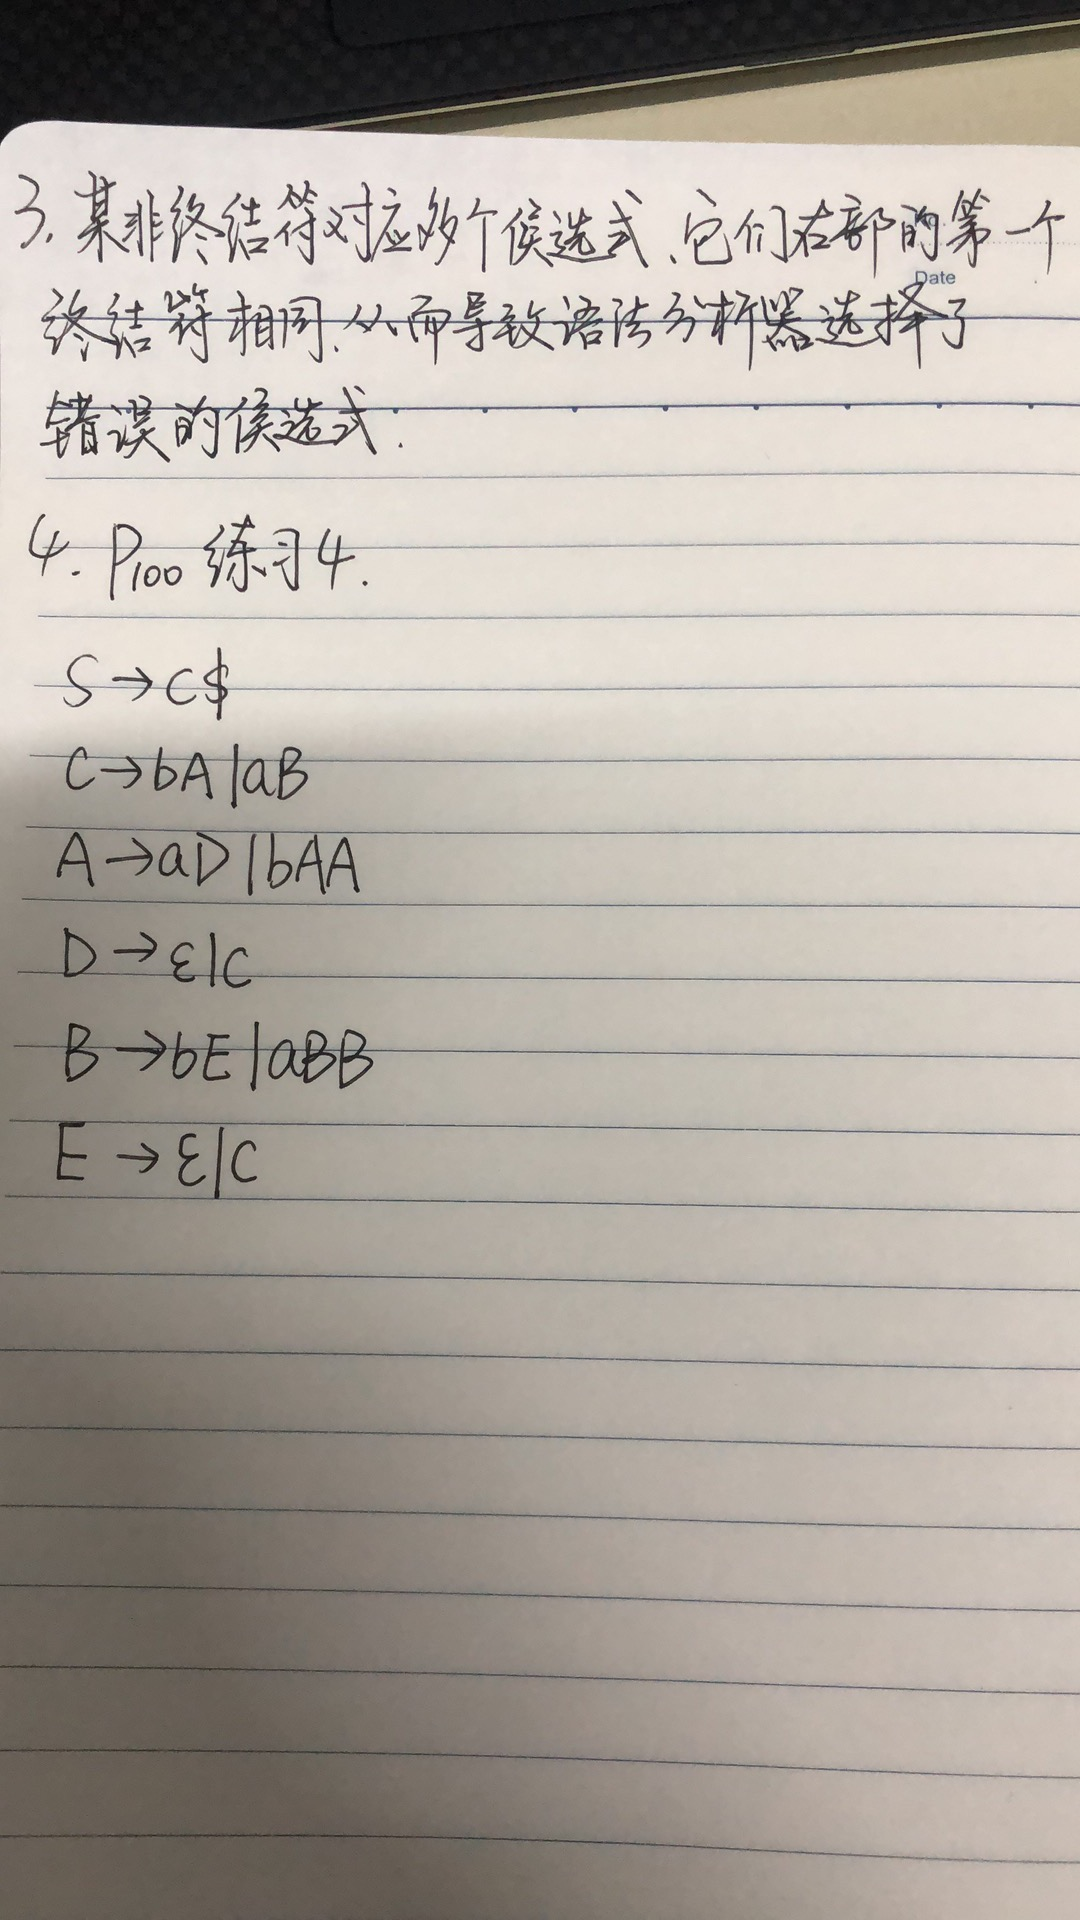 3. 某非终结符对应多个候选式、它们右部的第一个
Date
终结符相同.从而导致语法分析器选择了
错误的候选式.
4. P100 练习4.
S→C$
C→bA|aB
A→aD|bAA
D→ε|C
B→bE|aBB
E→ε|C